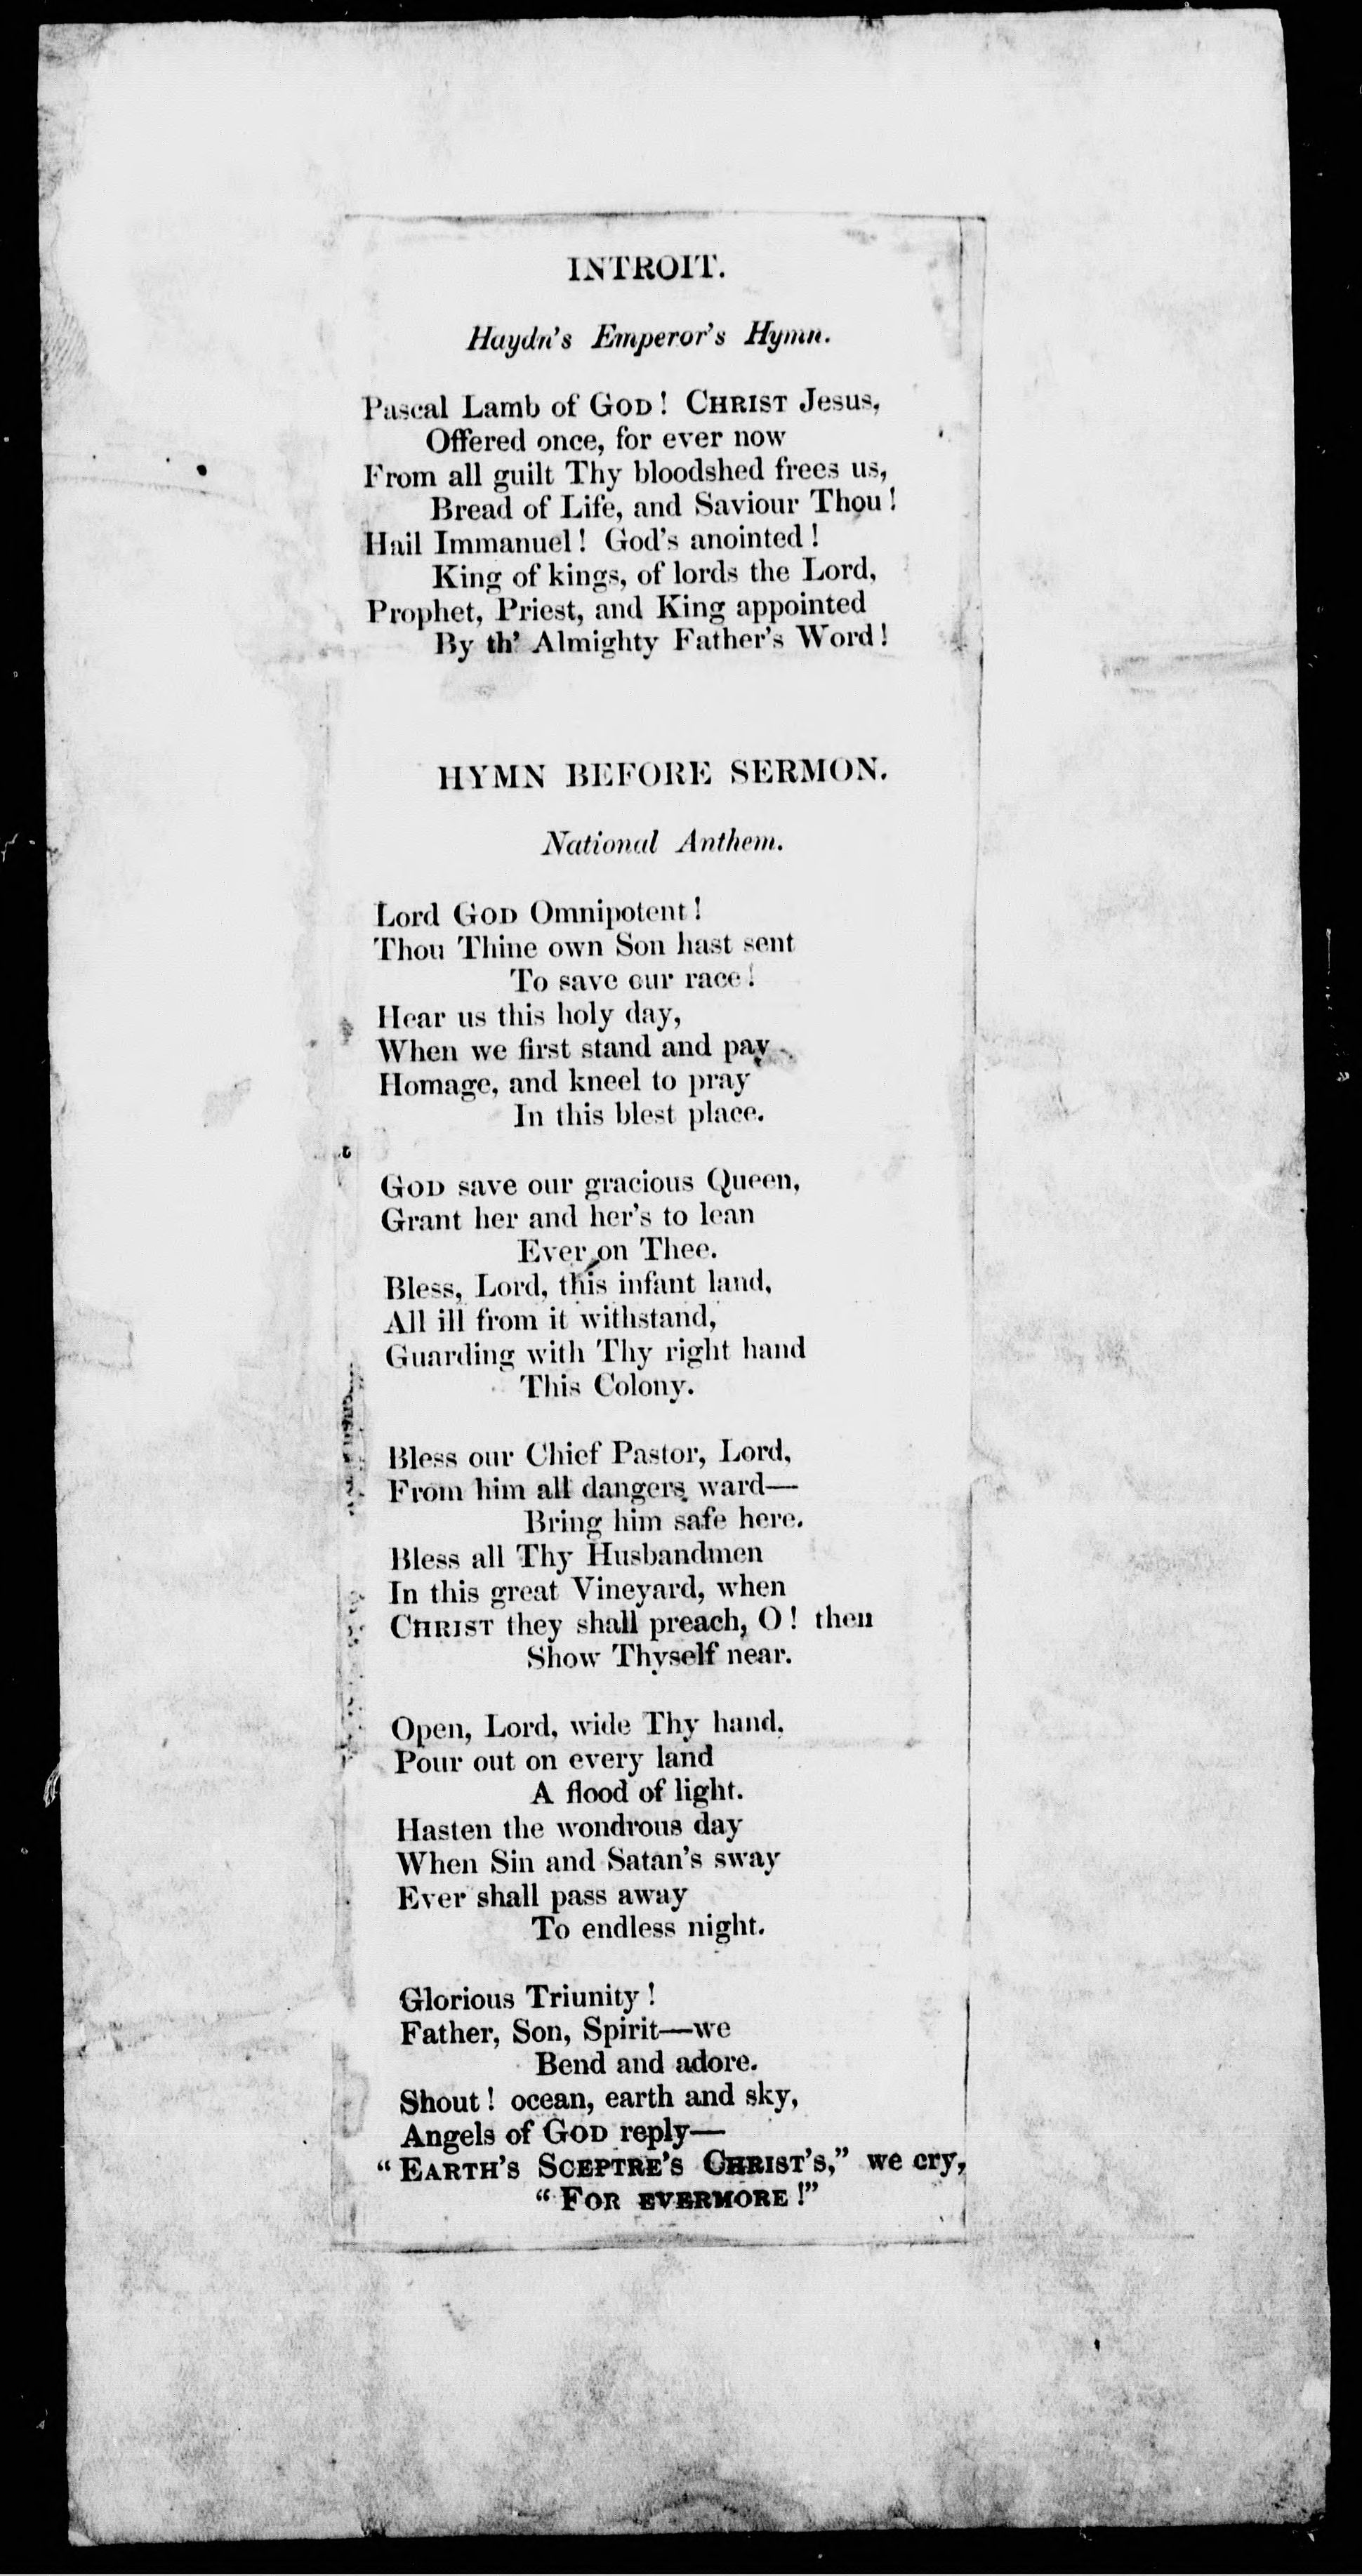 INTROIT.
Haydn's Emperor's Hymn.
Pascal Lamb of GOD! CHRIST Jesus,
Offered once, for ever now
From all guilt Thy bloodshed frees us,
Bread of Life, and Saviour Thou!
Hail Immanuel! God's anointed!
King of kings, of lords the Lord,
Prophet, Priest, and King appointed
By th' Almighty Father's Word!
HYMN BEFORE SERMON.
National Anthem.
Lord GOD Omnipotent!
Thou Thine own Son hast sent
To save our race!
Hear us this holy day,
When we first stand and pay
Homage, and kneel to pray
In this blest place.
GOD save our gracious Queen,
Grant her and her's to lean
Ever on Thee.
Bless, Lord, this infant land,
All ill from it withstand,
Guarding with Thy right hand
This Colony.
Bless our Chief Pastor, Lord,
From him all dangers ward—
Bring him safe here.
Bless all Thy Husbandmen
In this great Vineyard, when
CHRIST they shall preach, O! then
Show Thyself near.
Open, Lord, wide Thy hand,
Pour out on every land
A flood of light.
Hasten the wondrous day
When Sin and Satan's sway
Ever shall pass away
To endless night.
Glorious Triunity!
Father, Son, Spirit—we
Bend and adore.
Shout! ocean, earth and sky,
Angels of GOD reply—
"EARTH'S SCEPTRE'S CHRIST'S," we cry,
"FOR EVERMORE!"